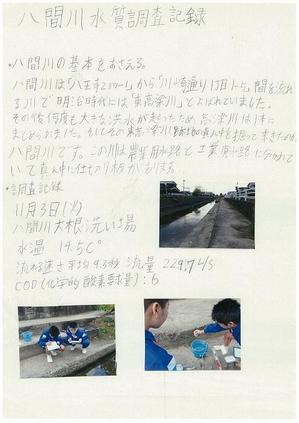 八間川水質調査記録
・八間川の基本をおさえる。
八間川は「八王寺」から「川崎通り1丁目」を間を流れ
る川で明治時代には「東高梁川」とよばれていました。
その後何度も大きな洪水が起ったため高梁川は1本に
まとめられました。そしてその東高梁川跡地の真ん中を掘って来きたのが
八間川です。この川は農業用水路と工業用水路に分かれて
いて真ん中に仕せり板があります。
・調査記録
11月3日(火)
八間川大根洗い場
水温 19.5C°
流れる速さ平均9.3秒 流量
COD(化学的酸素要求量):6